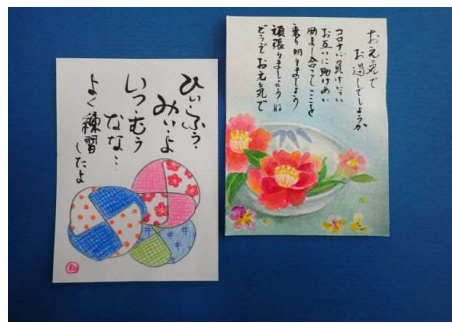 ひい・ふう
みい・よ
いつ・むう
なな…
よく練習したよ
お元気で
お過しでしょうか
コロナに負けない
お互いに助けあい
励まし合ってここを
乗り切りましょう
頑張りましょうね
どうぞお元気で